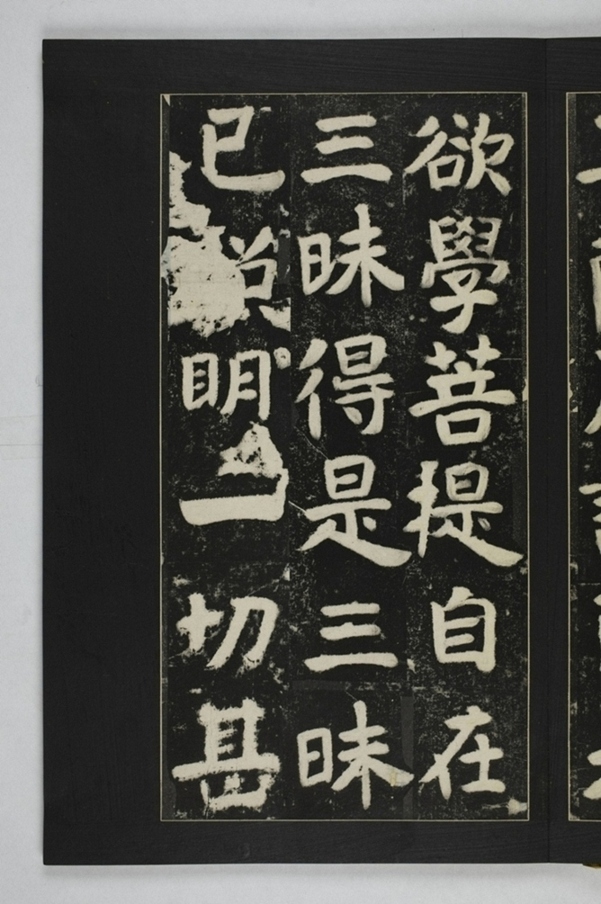 欲學菩提自在
三昧得是三昧
已明一切甚